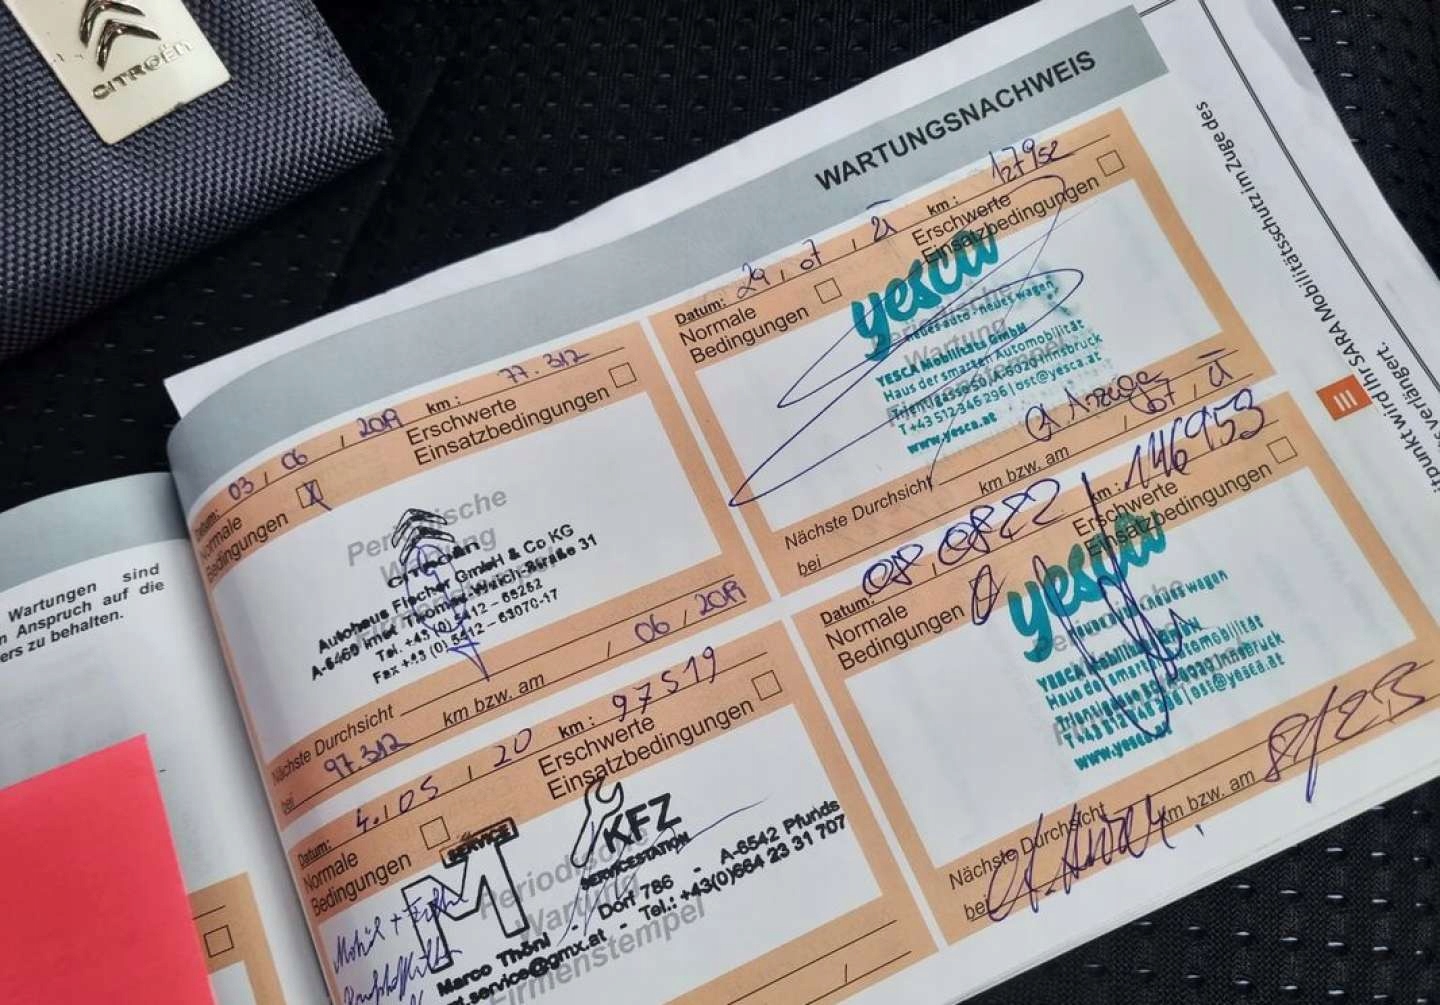 CITROËN
WARTUNGSNACHWEIS
Wartungen sind
n Anspruch auf die
ers zu behalten.
Datum: 03, 06, 2019 km: 77.312
Normale
Bedingungen
Erschwerte
Einsatzbedingungen
Periodische
Wartung
CITROËN
Autohaus Fischer GmbH & Co KG
A-6460 Imst Thomas-Walch-Straße 31
Tel. +43 (0) 5412 -
Fax +43 (0) 5412 - 63070-17
Nächste Durchsicht
06, 2019
bei 97312 km bzw. am
Datum: 4. 05, 20 km: 97519
Normale
Bedingungen
Erschwerte
Einsatzbedingungen
Periodische
Wartung
Firmenstempel
SERVICE
M
KFZ
SERVICESTATION
Dorf 786 - A-6542 Pfunds
Marco Thöni - Tel.: +43(0)664 23 31 707
service@gmx.at
Datum: 29, 07, 21 km:
Normale
Bedingungen
Erschwerte
Einsatzbedingungen
Periodische
Wartung
Firmenstempel
yesca
neues auto. neues wagen.
YESCA Mobilitäts GmbH
Haus der smarten Automobilität
Trientlgasse 50, A-6020 Innsbruck
T +43 512 346 296 | ost@yesca.at
www.yesca.at
Nächste Durchsicht
bei km bzw. am
Datum: 08, 08 22 km: 146953
Normale
Bedingungen
Erschwerte
Einsatzbedingungen
yesca
neues wagen
YESCA
Haus der smarten Automobilität
Innsbruck
ost@yesca.at
www.yesca.at
Nächste Durchsicht
bei km bzw. am 8/23
itpunkt wird Ihr SARA Mobilitätsschutz im Zuge des
s verlängert.
III